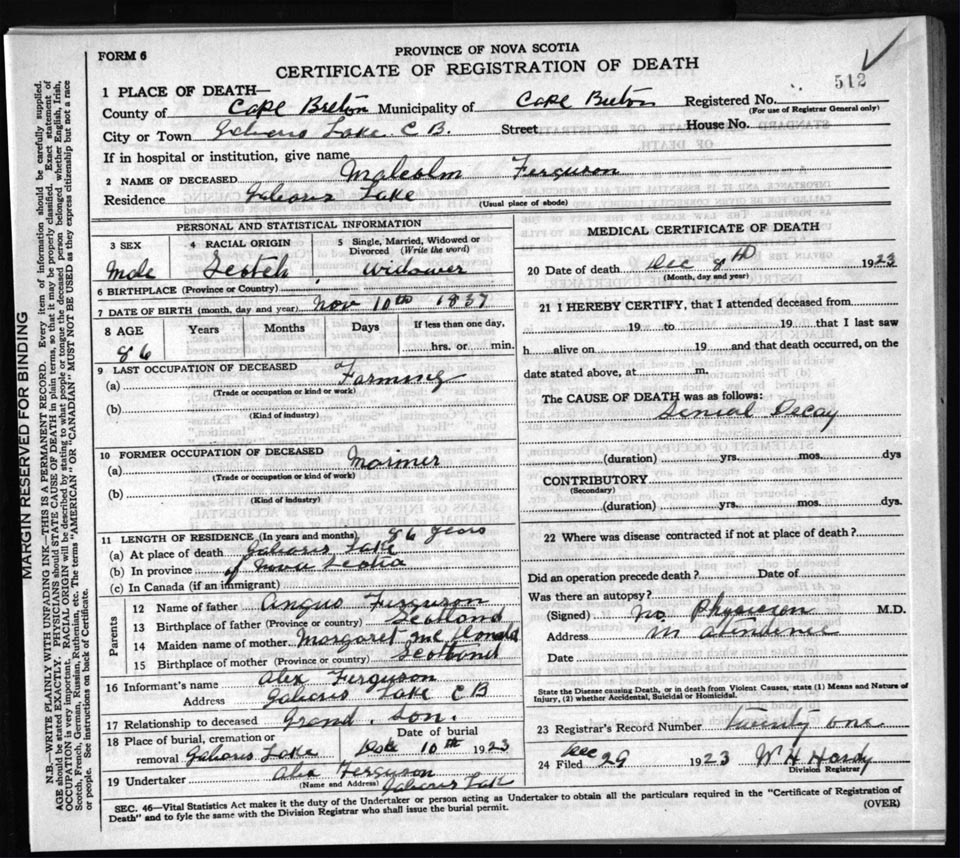 FORM 6
PROVINCE OF NOVA SCOTIA
CERTIFICATE OF REGISTRATION OF DEATH
512
1 PLACE OF DEATH—
County of Cape Breton Municipality of Cape Breton Registered No.
(For use of Registrar General only)
City or Town Gabarus Lake C B. Street House No.
If in hospital or institution, give name
2 NAME OF DECEASED Malcolm Ferguson
Residence Gabarus Lake (Usual place of abode)
PERSONAL AND STATISTICAL INFORMATION
3 SEX
Male
4 RACIAL ORIGIN
Scotch
5 Single, Married, Widowed or Divorced (Write the word)
Widower
6 BIRTHPLACE (Province or Country)
7 DATE OF BIRTH (month, day and year) Nov 10th 1837
8 AGE Years Months Days If less than one day,
86 hrs. or min.
9 LAST OCCUPATION OF DECEASED
(a) Farming
(Trade or occupation or kind or work)
(b)
(Kind of industry)
10 FORMER OCCUPATION OF DECEASED
(a) Marmer
(Trade or occupation or kind of work)
(b)
(Kind of industry)
11 LENGTH OF RESIDENCE (In years and months) 86 years
(a) At place of death Gabarus Lake
(b) In province of Nova Scotia
(c) In Canada (if an immigrant)
Parents
12 Name of father Angus Ferguson
13 Birthplace of father (Province or country) Scotland
14 Maiden name of mother Margaret Mc Donald
15 Birthplace of mother (Province or country) Scotland
16 Informant's name Alex Ferguson
Address Gabarus Lake C B
17 Relationship to deceased Grand. Son.
18 Place of burial, cremation or removal Gabarus Lake
Date of burial
Dec 10th 1923
19 Undertaker Alex Ferguson
(Name and Address) Gabarus Lake
MEDICAL CERTIFICATE OF DEATH
20 Date of death Dec 8th 1923
(Month, day and year)
21 I HEREBY CERTIFY, that I attended deceased from
19 to 19 that I last saw
h alive on 19 and that death occurred, on the
date stated above, at m.
The CAUSE OF DEATH was as follows:
Senial Decay
(duration) yrs. mos. dys
CONTRIBUTORY
(Secondary)
(duration) yrs. mos. dys.
22 Where was disease contracted if not at place of death?
Did an operation precede death? Date of
Was there an autopsy?
(Signed) No Physician M.D.
Address in atendence
Date
State the Disease causing Death, or in death from Violent Causes, state (1) Means and Nature of
Injury, (2) whether Accidental, Suicidal or Homicidal.
23 Registrar's Record Number twenty one
24 Filed Dec 29 1923 W H Hardy
Division Registrar
SEC. 46—Vital Statistics Act makes it the duty of the Undertaker or person acting as Undertaker to obtain all the particulars required in the "Certificate of Registration of
Death" and to fyle the same with the Division Registrar who shall issue the burial permit.
(OVER)
MARGIN RESERVED FOR BINDING
N.B.—WRITE PLAINLY WITH UNFADING INK—THIS IS A PERMANENT RECORD. Every item of information should be carefully supplied.
AGE should be stated EXACTLY. PHYSICIANS should STATE CAUSE OF DEATH in plain terms, so that it may be properly classified. Exact statement of
OCCUPATION is very important. RACIAL ORIGIN will be described by stating to what people or tongue the deceased person belonged whether English, Irish,
Scotch, French, German, Russian, Ruthenian, etc. The terms "AMERICAN" OR "CANADIAN" MUST NOT BE USED as they express citizenship but not a race
or people. See instructions on back of Certificate.